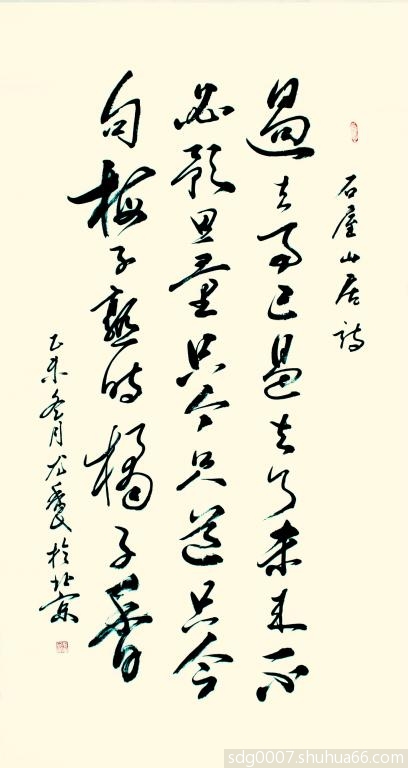 石屋山居詩
過去事已過去了未来不
必預思量只今只道只今
句梅子熟時橘子香
乙未冬月尤 於北京
sdg0007.shuhua66.com